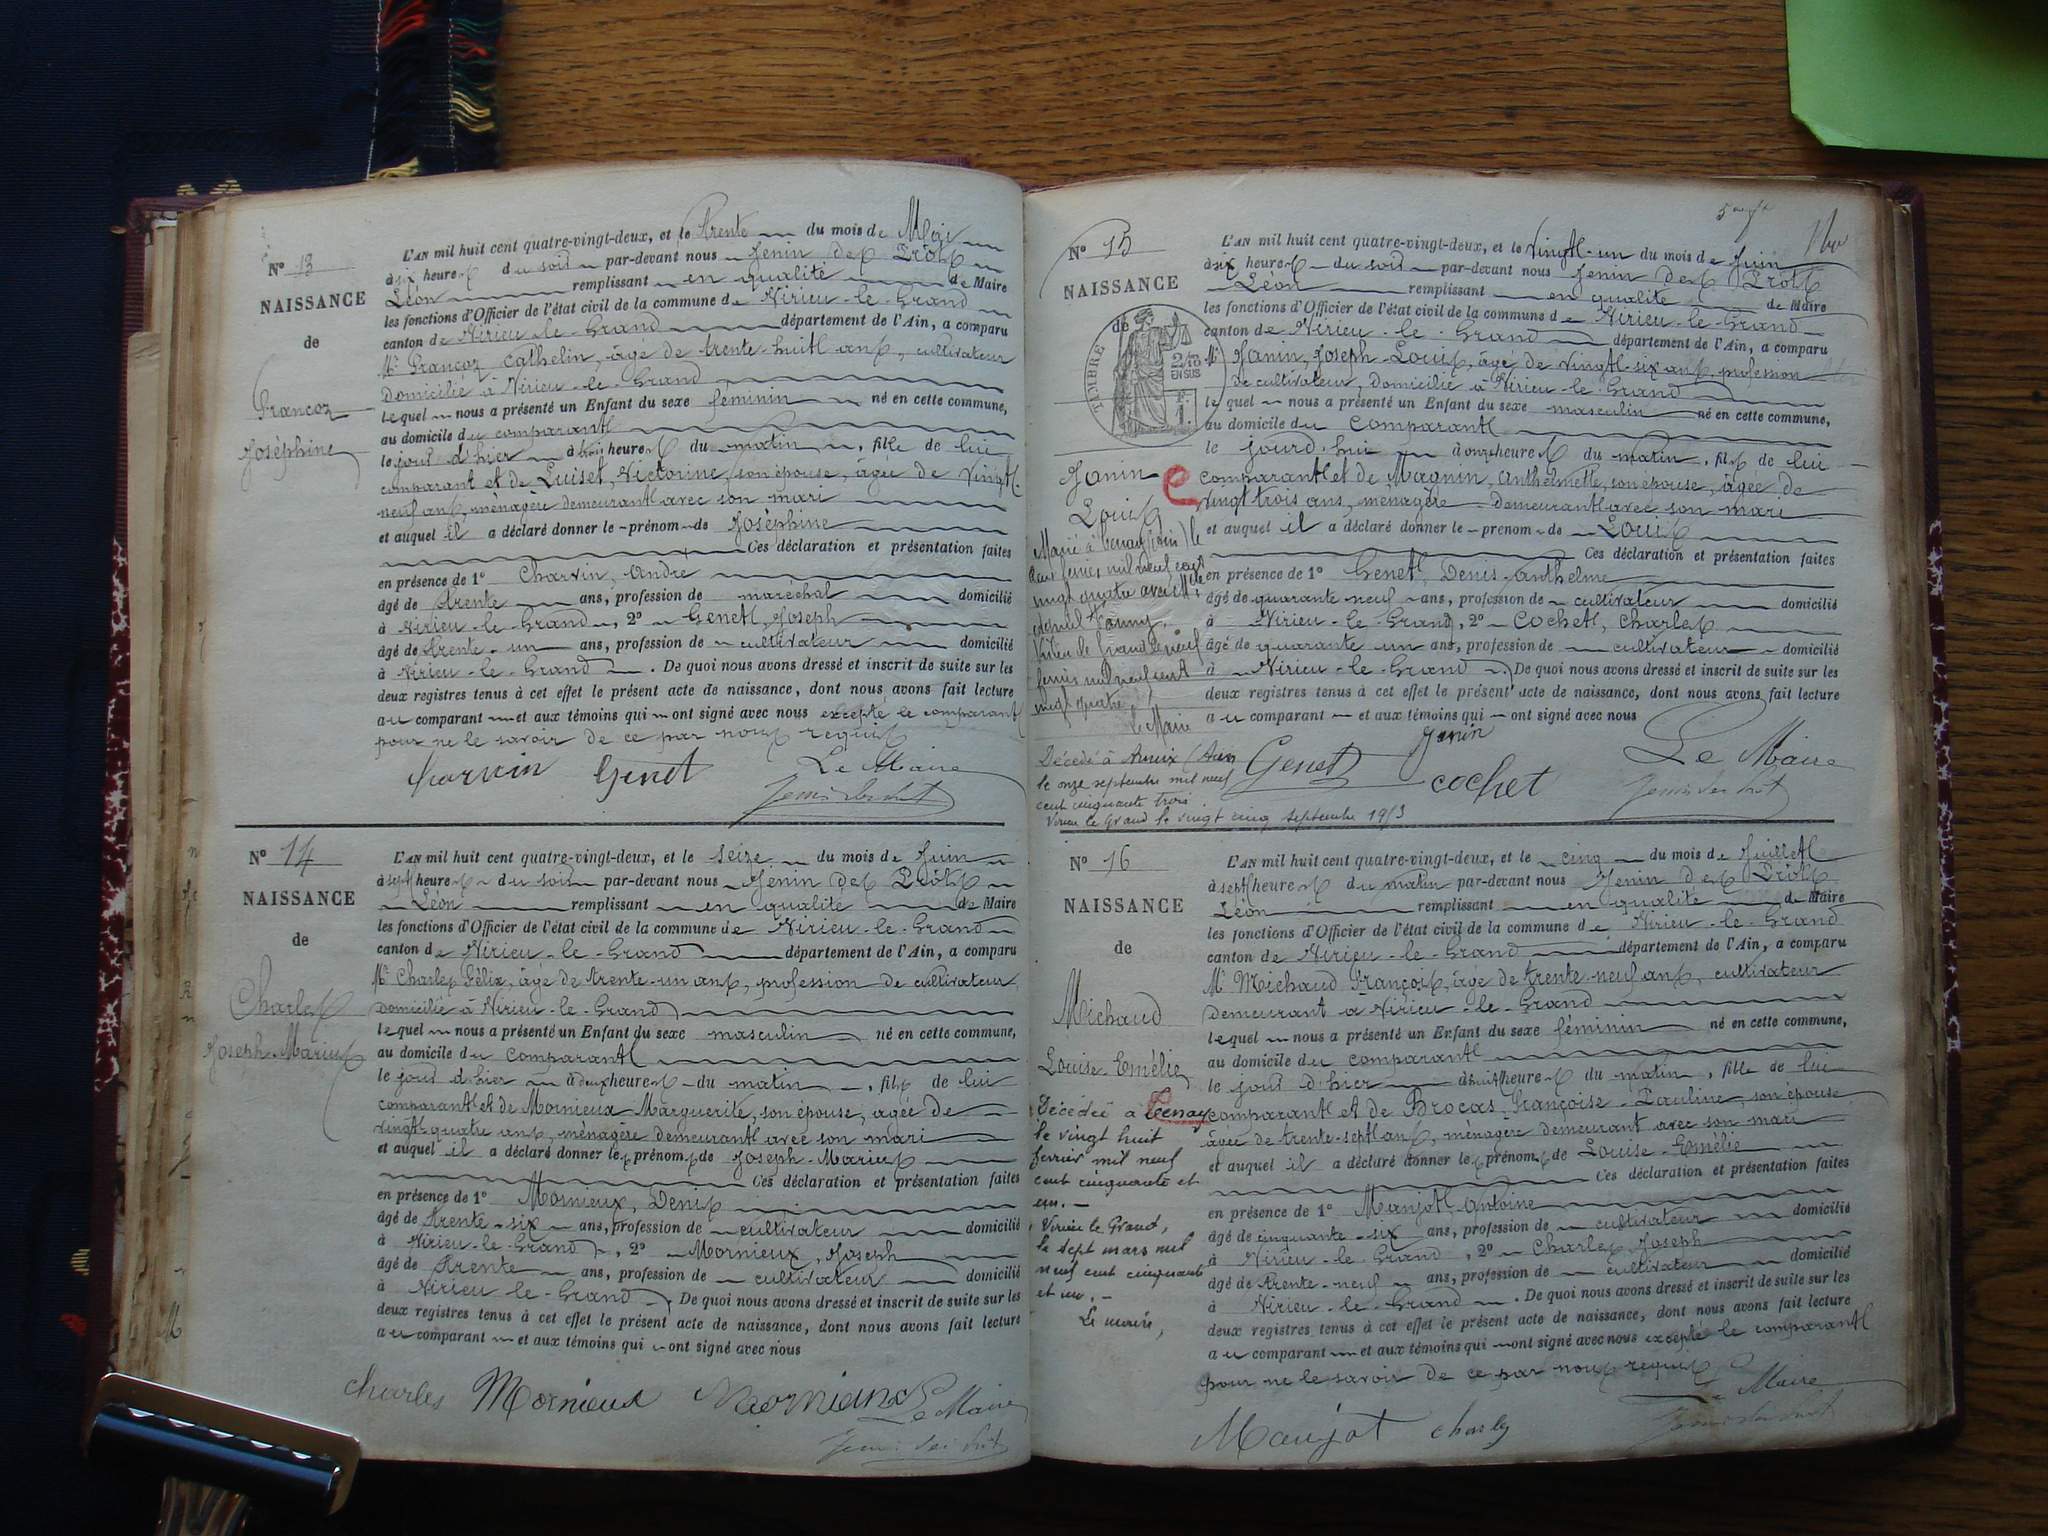 N° 13
NAISSANCE
de
Francoz
Joséphine
L'AN mil huit cent quatre-vingt-deux, et le Trente du mois de Mai
à six heures du soir par-devant nous Jenin des Prôts
Léon remplissant en qualité de Maire
les fonctions d'Officier de l'état civil de la commune de Virieu-le-Grand
canton de Virieu-le-Grand département de l'Ain, a comparu
Mr Francoz Cathelin, âgé de trente-huit ans, cultivateur
domicilié à Virieu-le-Grand
lequel nous a présenté un Enfant du sexe féminin né en cette commune,
au domicile du comparant
le jour d'hier à trois heures du matin, fille de lui
comparant et de Luiset, Victorine, son épouse, âgée de vingt-
neuf ans, ménagère demeurant avec son mari
et auquel il a déclaré donner le prénom de Joséphine
Ces déclaration et présentation faites
en présence de 1° Charvin, André
âgé de trente ans, profession de maréchal domicilié
à Virieu-le-Grand, 2° Genet, Joseph
âgé de trente-un ans, profession de cultivateur domicilié
à Virieu-le-Grand. De quoi nous avons dressé et inscrit de suite sur les
deux registres tenus à cet effet le présent acte de naissance, dont nous avons fait lecture
au comparant et aux témoins qui ont signé avec nous excepté le comparant
pour ne le savoir de ce par nous requis
Charvin Genet Le Maire
N° 14
NAISSANCE
de
Charles
Joseph-Marius
L'AN mil huit cent quatre-vingt-deux, et le seize du mois de Juin
à sept heures du soir par-devant nous Jenin des Prôts
Léon remplissant en qualité de Maire
les fonctions d'Officier de l'état civil de la commune de Virieu-le-Grand
canton de Virieu-le-Grand département de l'Ain, a comparu
Mr Charles Félix, âgé de trente-un ans, profession de cultivateur
domicilié à Virieu-le-Grand
lequel nous a présenté un Enfant du sexe masculin né en cette commune,
au domicile du comparant
le jour d'hier à deux heures du matin, fils de lui
comparant et de Mornieux Marguerite, son épouse, âgée de
vingt-quatre ans, ménagère demeurant avec son mari
et auquel il a déclaré donner les prénoms de Joseph-Marius
Ces déclaration et présentation faites
en présence de 1° Mornieux, Denis
âgé de trente-six ans, profession de cultivateur domicilié
à Virieu-le-Grand, 2° Mornieux, Joseph
âgé de trente ans, profession de cultivateur domicilié
à Virieu-le-Grand. De quoi nous avons dressé et inscrit de suite sur les
deux registres tenus à cet effet le présent acte de naissance, dont nous avons fait lecture
au comparant et aux témoins qui ont signé avec nous
Charles Mornieux Mornieux Le Maire
N° 15
NAISSANCE
de
TIMBRE
2/10
EN SUS
Janin
Louis
Marié à Tenay (Ain) le
deux février mil neuf cent
vingt quatre avec Mlle
Virieu le Grand le neuf
février mil neuf cent
vingt quatre
le Maire
Décédé à
le onze septembre mil neuf
cent cinquante trois.
Virieu le Grand le vingt cinq septembre 1953
L'AN mil huit cent quatre-vingt-deux, et le Vingt-un du mois de Juin
à six heures du soir par-devant nous Jenin des Prôts
Léon remplissant en qualité de Maire
les fonctions d'Officier de l'état civil de la commune de Virieu-le-Grand
canton de Virieu-le-Grand département de l'Ain, a comparu
Mr Janin, Joseph-Louis, âgé de vingt-six ans, profession
de cultivateur, domicilié à Virieu-le-Grand
lequel nous a présenté un Enfant du sexe masculin né en cette commune,
au domicile du comparant
le jourd'hui à onze heures du matin, fils de lui
comparant et de Magnin, Anthelmette, son épouse, âgée de
vingt trois ans, ménagère demeurant avec son mari
et auquel il a déclaré donner le prenom de Louis
Ces déclaration et présentation faites
en présence de 1° Genet, Denis-Anthelme
âgé de quarante-neuf ans, profession de cultivateur domicilié
à Virieu-le-Grand, 2° Cochet, Charles
âgé de quarante un ans, profession de cultivateur domicilié
à Virieu-le-Grand. De quoi nous avons dressé et inscrit de suite sur les
deux registres tenus à cet effet le présent acte de naissance, dont nous avons fait lecture
au comparant et aux témoins qui ont signé avec nous
Genet Janin cochet Le Maire
N° 16
NAISSANCE
de
Michaud
Louise-Emélie
Décédée à Tenay
le vingt huit
février mil neuf
cent cinquante et
un.-
Virieu le Grand,
le sept mars mil
neuf cent cinquante
et un.-
Le maire,
L'AN mil huit cent quatre-vingt-deux, et le cinq du mois de Juillet
à sept heures du matin par-devant nous Jenin des Prôts
Léon remplissant en qualité de Maire
les fonctions d'Officier de l'état civil de la commune de Virieu-le-Grand
canton de Virieu-le-Grand département de l'Ain, a comparu
Mr Michaud François, âgé de trente-neuf ans, cultivateur
demeurant à Virieu-le-Grand
lequel nous a présenté un Enfant du sexe féminin né en cette commune,
au domicile du comparant
le jour d'hier à huit heures du matin, fille de lui
comparant et de Brocas, Françoise-Pauline, son épouse,
âgée de trente-sept ans, ménagère demeurant avec son mari
et auquel il a déclaré donner les prénoms de Louise-Emélie
Ces déclaration et présentation faites
en présence de 1° Manjot, Antoine
âgé de cinquante-six ans, profession de cultivateur domicilié
à Virieu-le-Grand, 2° Charles Joseph
âgé de trente-neuf ans, profession de cultivateur domicilié
à Virieu-le-Grand. De quoi nous avons dressé et inscrit de suite sur les
deux registres tenus à cet effet le présent acte de naissance, dont nous avons fait lecture
au comparant et aux témoins qui ont signé avec nous excepté le comparant
pour ne le savoir de ce par nous requis
Manjot Charles Le Maire